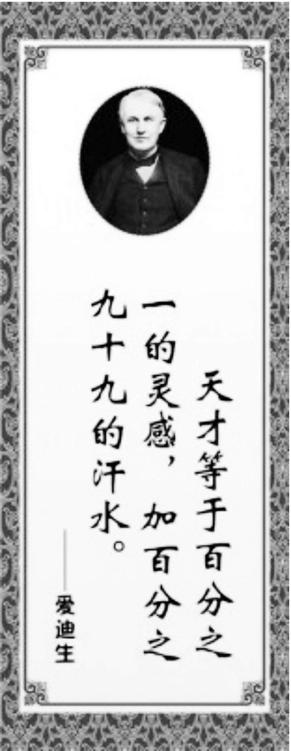 天才等于百分之
一的灵感，加百分之
九十九的汗水。
——爱迪生